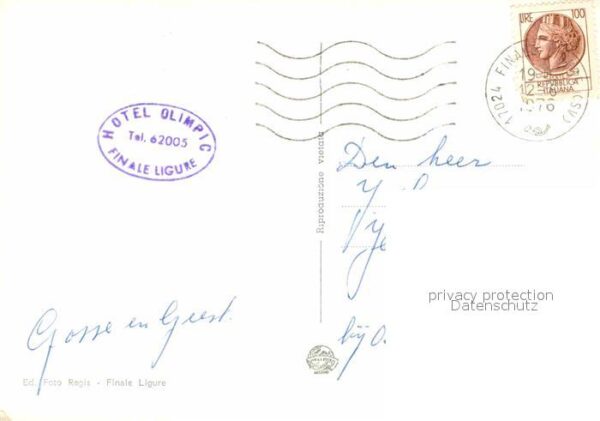 LIRE 100
REPUBBLICA
ITALIANA
17024 FINALE
19
12
1976
(SV)
HOTEL OLIMPIC
Tel. 62005
FINALE LIGURE
Riproduzione vietata
Den heer
privacy protection
Datenschutz
Gosse en Geest.
Ed. Foto Regis - Finale Ligure